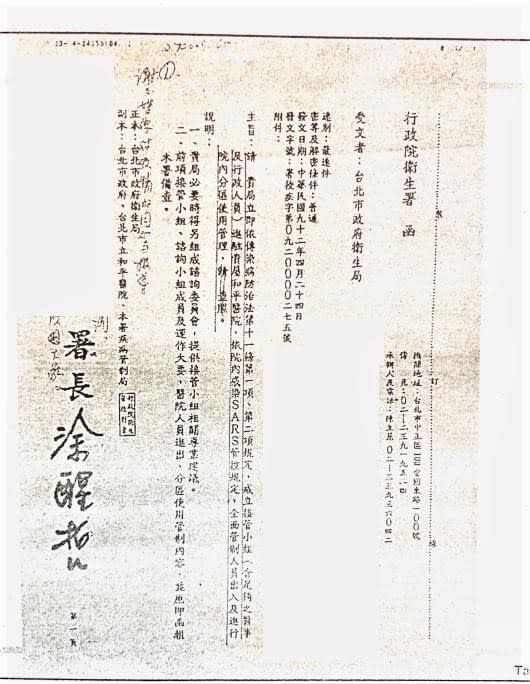 行政院衛生署 函
機關地址：台北市中正區100愛國東路一00號
傳 真：0二-二三九一九五二四
受文者：台北市政府衛生局
速別：最速件
密等及解密條件：普通
發文日期：中華民國九十二年四月二十四日
發文字號：署授疾字第0九二0000二七五號
附件：
主旨：請 貴局立即依傳染病防治法第十一條第一項、第二項規定，成立接管小組（含足夠之醫事
及行政人員）進駐貴局和平醫院，依院內感染SARS管控規定，全面管制人員出入及進行
院內分區使用管理，請 查照。
說明：
一、貴局必要時得另組成諮詢委員會，提供接管小組相關專業建議。
二、前項接管小組、諮詢小組成員及運作大要，醫院人員進出、分區使用管制內容，並應即函報
本署備查。
正本：台北市政府衛生局
副本：台北市政府、台北市立和平醫院、本署疾病管制局
署長涂醒哲
第一頁
Ta